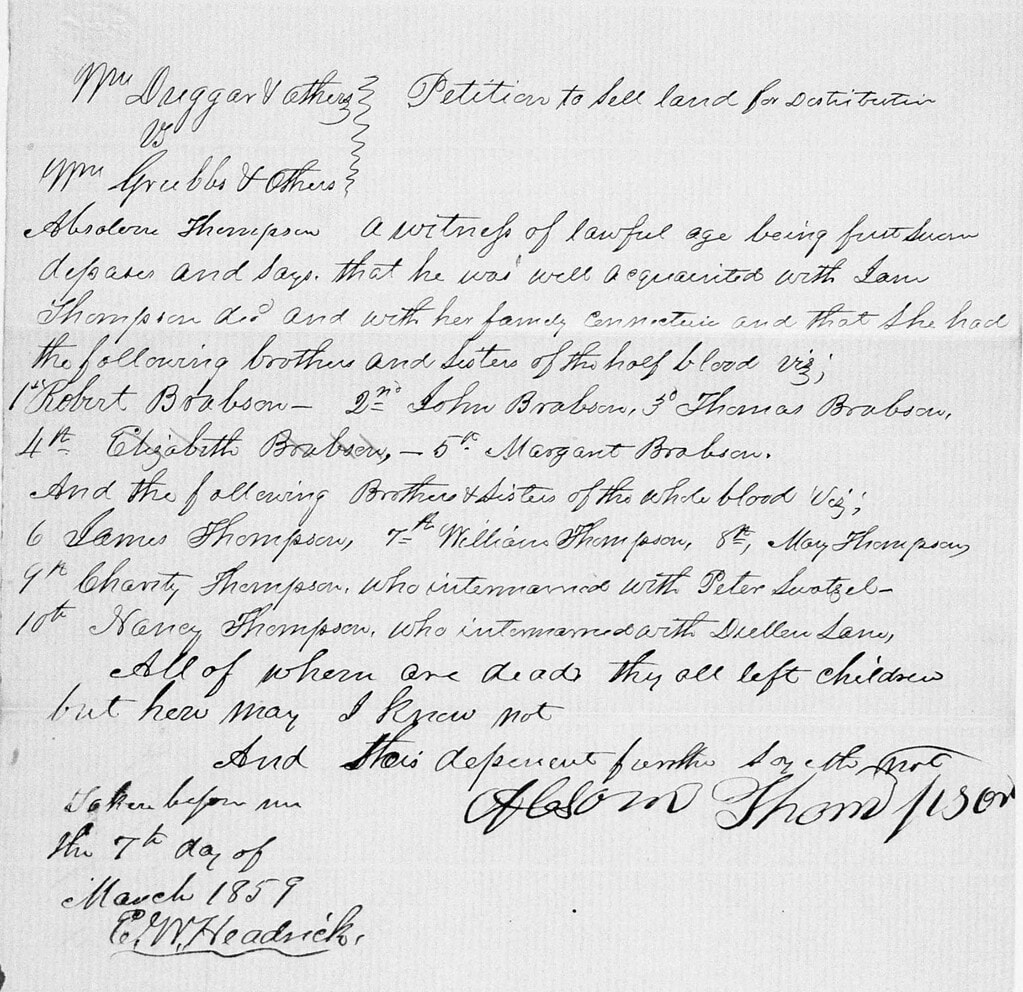 Wm Duggar & others } Petition to Sell land for Distribution
vs
Wm Grubbs & Others
Absolom Thompson a witness of lawful age being first Sworn
deposes and says. that he was well acquainted with Jane
Thompson decd and with her family connection and that She had
the following brothers and Sisters of the half blood viz;
1st Robert Brabson – 2nd John Brabson, 3d Thomas Brabson,
4th Elizabeth Brabson, – 5th Margaret Brabson.
And the following Brothers & Sisters of the whole blood Viz;
6 James Thompson, 7th William Thompson, 8th, Mary Thompson,
9th Charity Thompson, who intermarried with Peter Swatzel –
10th Nancy Thompson, who intermarried with Lane,
All of whom are dead they all left children
but how many I know not
And this deponent further sayeth not
Absom Thompson
Taken before me
the 7th day of
March 1859
E. W. Headrick.